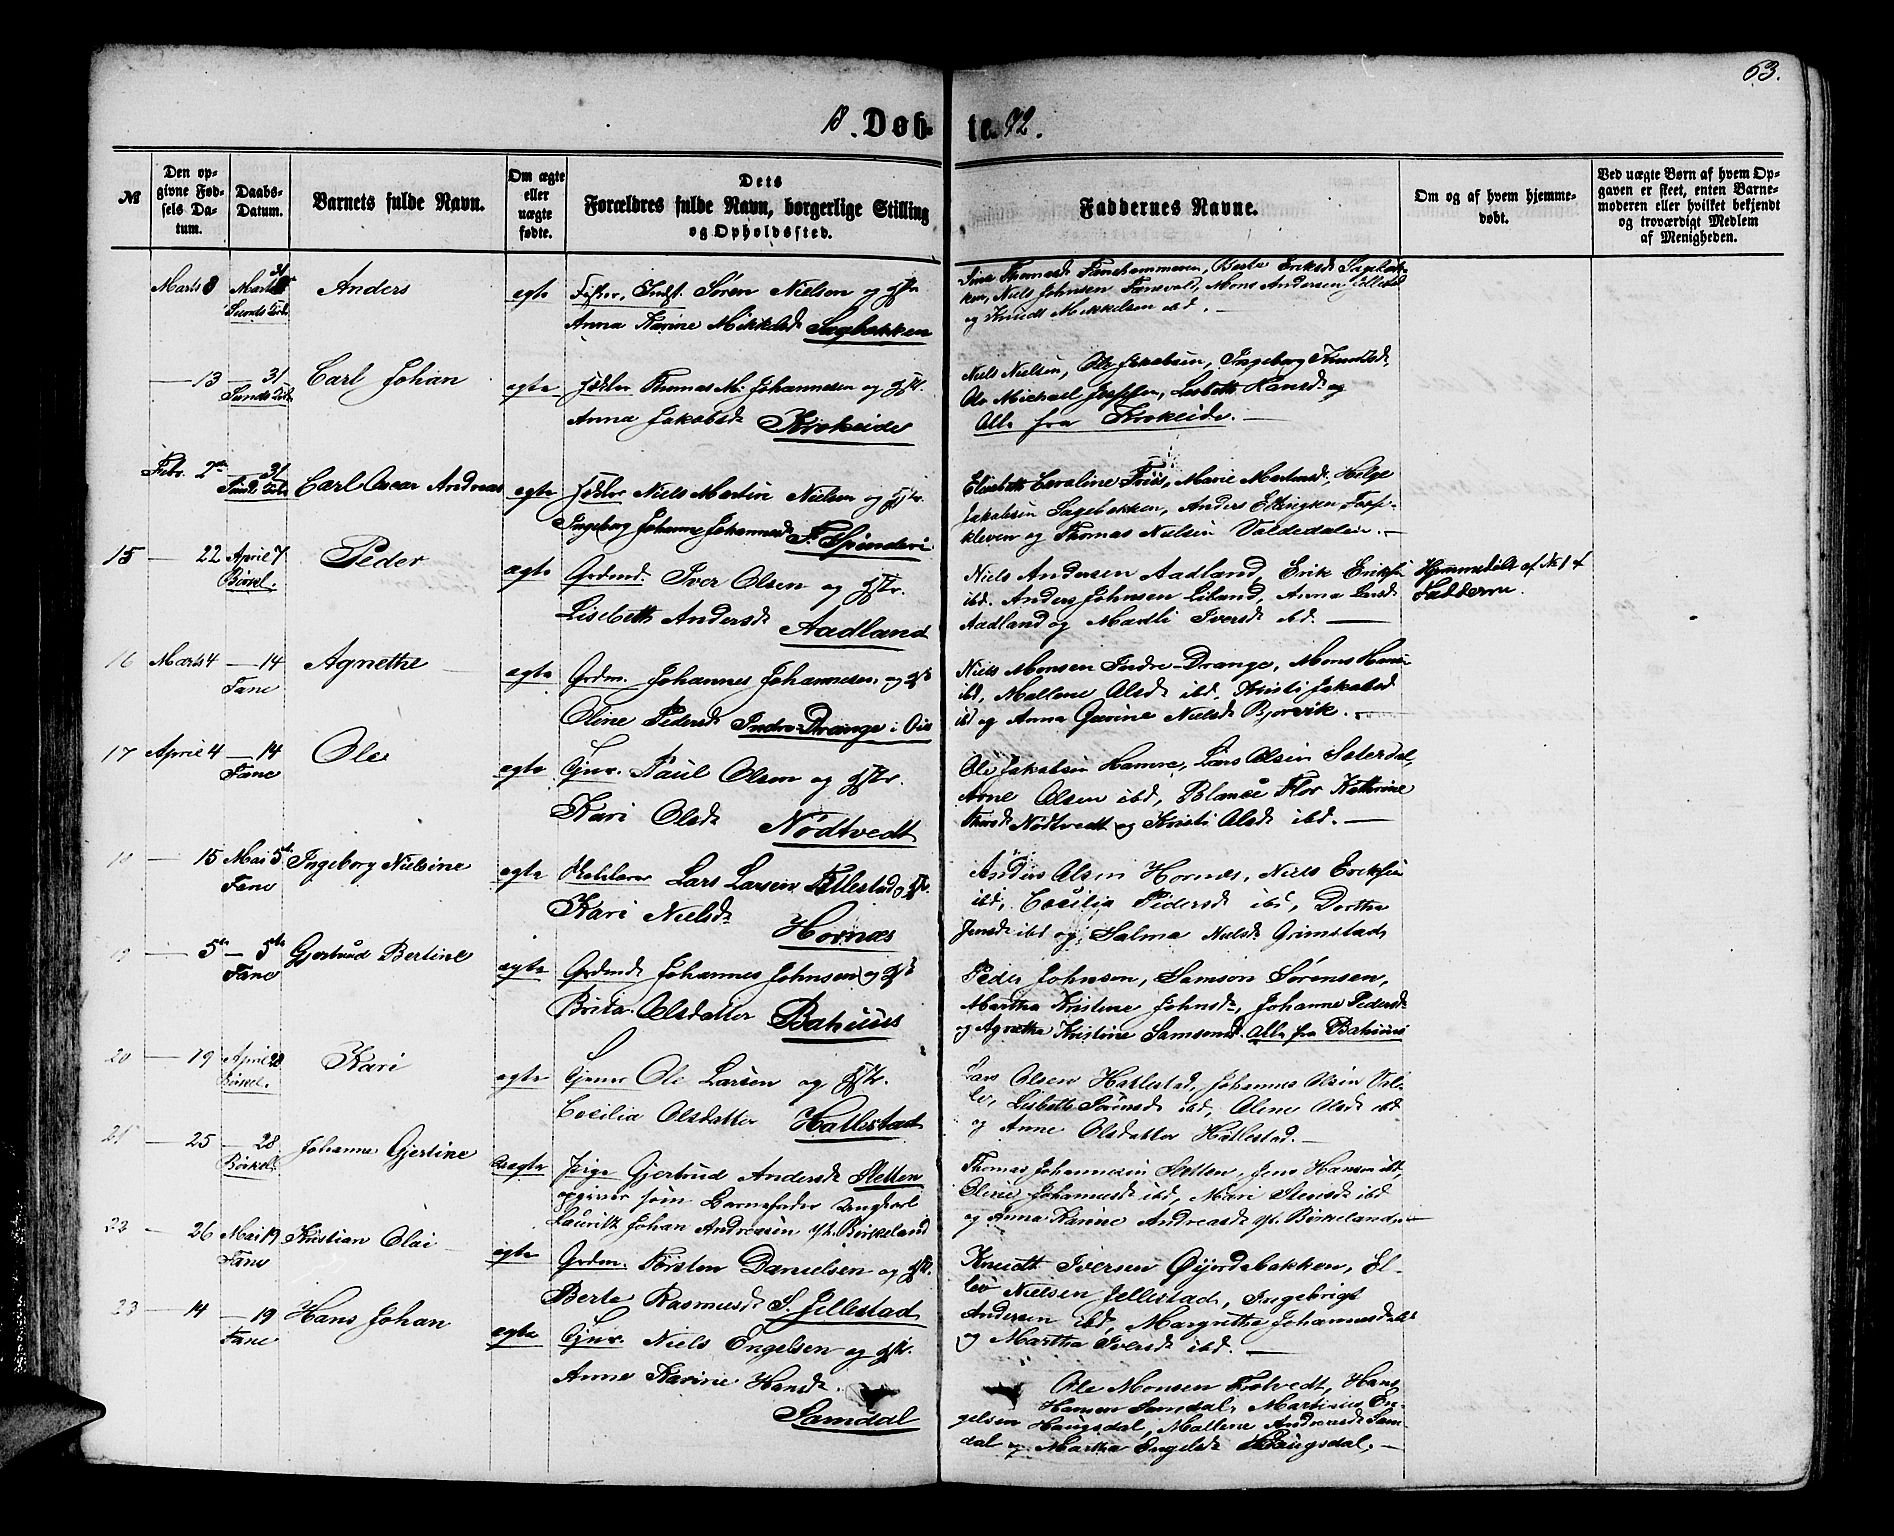 63.
18. Døb-
te. 92.
№
Den op-
givne Fød-
sels Da-
tum.
Daabs-
Datum.
Barnets fulde Navn.
Om ægte
eller
uægte
fødte.
Dets
Forældres fulde Navn, borgerlige Stilling
og Opholdssted.
Faddernes Navne.
Om og af hvem hjemme-
døbt.
Ved uægte Børn af hvem Op-
gaven er skeet, enten Barne-
moderen eller hvilket bekjendt
og troværdigt Medlem
af Menigheden.
Marts 8 Marts 31 Anders egte Søren Nielsen og Hstr.
Anna Karine Mikkelsd. Sagebakken
Thomasd. Fanehammeren, Berte Eriksd. Sagebak-
ken, Niels Johnsen, Mons Andersen
og Knudt Mikkelsen ibd.
— 13 — 31 Carl Johan egte Thomas M. Johannesen og Hstr.
Anna Jakobsd. Krokeide
Niels Nielsen, Ole Jakobsen, Ingeborg Knudtsd.
Ole Michael, Lisbeth Hansd. og
Alle fra Krokeide.
Febr. 2den 31 Carl Oscar Andreas egte Niels Martin Nielsen og Hstr.
Ingeborg Johanne Johannesd.
Elisabeth Caroline Friis, Marie Martinsd., Helge
Jakobsen Sagebakken, Anders
kleven og Thomas Nielsen Valdedalen.
15 — 22 April 7 Peder egte Grdmd. Iver Olsen og Hstr.
Birkel.
Lisebeth Andersd. Aadland
Niels Andersen Aadland, Erik Eriksen
ibd. Anders Johnsen Liland, Anna Larsd.
Aadland og Madli Iversd. ibd. —
Hjemmedøbt af № 1 af
Fadderne.
16 Marts 4 — 14 Agnethe egte Grdm. Johannes Johannesen og Hst.
Fane
Oline Pedersd. Indre-Drange i Os
Niels Monsen Indre-Drange, Mons Hans.
ibd, Mallene Olsd. ibd, Kristi Jakobsd.
ibd og Anna Gurine Nielsd. Bjorvik. —
17 April 4 — 14 Ole egte Gjnr. Paul Olsen og Hstr.
Fane
Kari Olsd. Nødtvedt
Ole Jakobsen Hamre, Lars Olsen Sæterdal,
Arne Olsen ibd, Kathrine
Nødtvedt og Kristi Olsd. ibd. —
18 — 15 Mai 5te Ingeborg Nielsine egte Lars Larsen og Hstr.
Fane
Kari Nielsd. Hornæs
Anders Olsen Hornæs, Niels Eriksen
ibd, Cecilia Pedersd. ibd, Dorthea
Jensd. ibd og Salma Nielsd. Grimstad,
19 — 5te — 5te Gjertrud Bertine egte Grdmd. Johannes Johnsen og Hst.
Fane
Brita Olsdatter Bahuus
Peder Johnsen, Samson Sørensen,
Martha Kristine Johnsd., Johanne Pedersd.
og Agnethe Kristine Samsonsd. Alle fra Bahuus
20 — 19 April 28 Kari egte Gjnr. Ole Larsen og Hstr.
Birkel.
Cecilia Olsdatter Hatlestad
Lars Olsen Hatlestad, Johannes Olsen
Lisbeth Sørensd. ibd, Oline Olsd. ibd
og Anne Olsdatter Hatlestad. —
21 — 25 — 28 Johanne Gjertine uegte Pige Gjertrud Andersd. Sletten
Birkel.
opgiver som Barnefader Ungkarl
Lauritz Johan Andreasen Birkeland
Thomas Johannesen Sletten, Jens Hansen ibd,
Oline Johannesd. ibd, Mari ibd
og Anna Karine Andreasd. Birkeland. —
22 — 26 Mai 19 Kristian Olai egte Grdm. Torsten Danielsen og Hstr.
Fane
Berte Rasmusd. S. Jellestad
Knudt Iversen Øvjordsbakken, El-
lev Nielsen Jellestad, Ingebrigt
Andersen ibd, Margrethe Johannesd. ibd
og Martha Iversd. ibd. —
23 — 14 — 19 Hans Johan egte Gjnr. Niels Engelsen og Hstr.
Fane
Anne Karine Hansd.
Samdal
Ole Monsen, Hans
Hansen Samdal, Martinus En-
gelsen Haugsdal, Mallene Andreasd. Sam-
dal og Martha Engelsd. Haugsdal. —